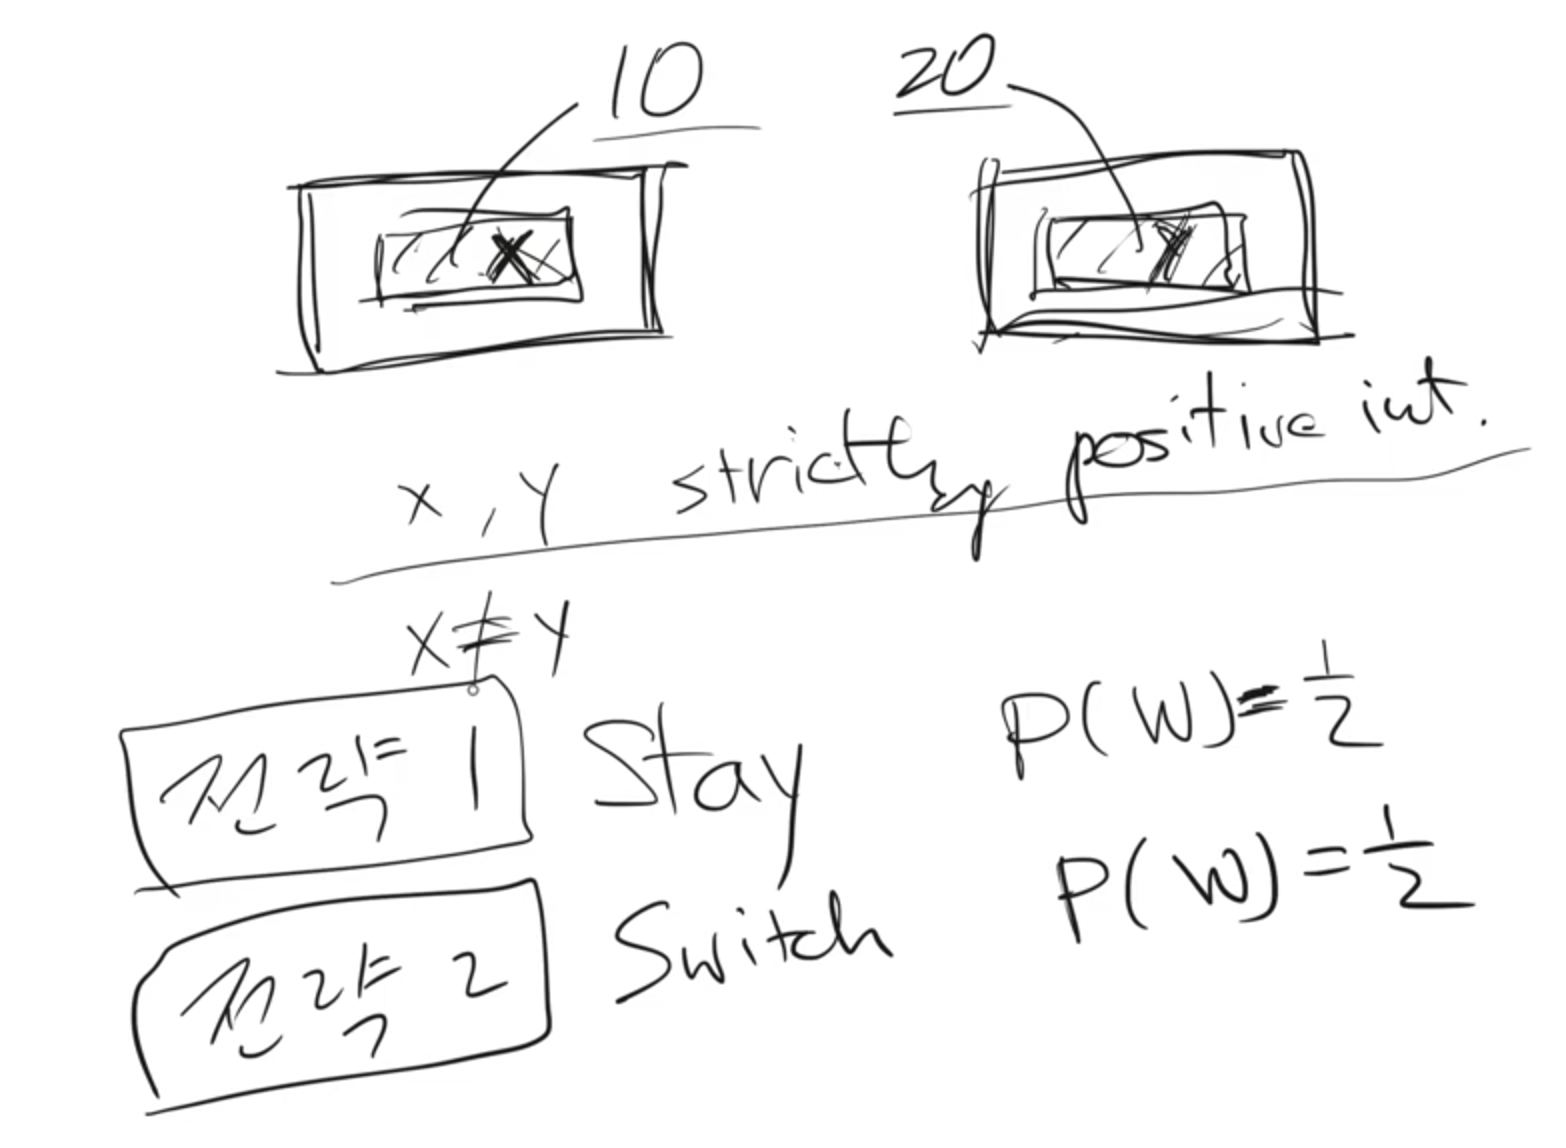 10 20
X Y
x, y strictly positive int.
x ≠ y
전략 1 Stay P(W)=1/2
전략 2 Switch P(W)=1/2